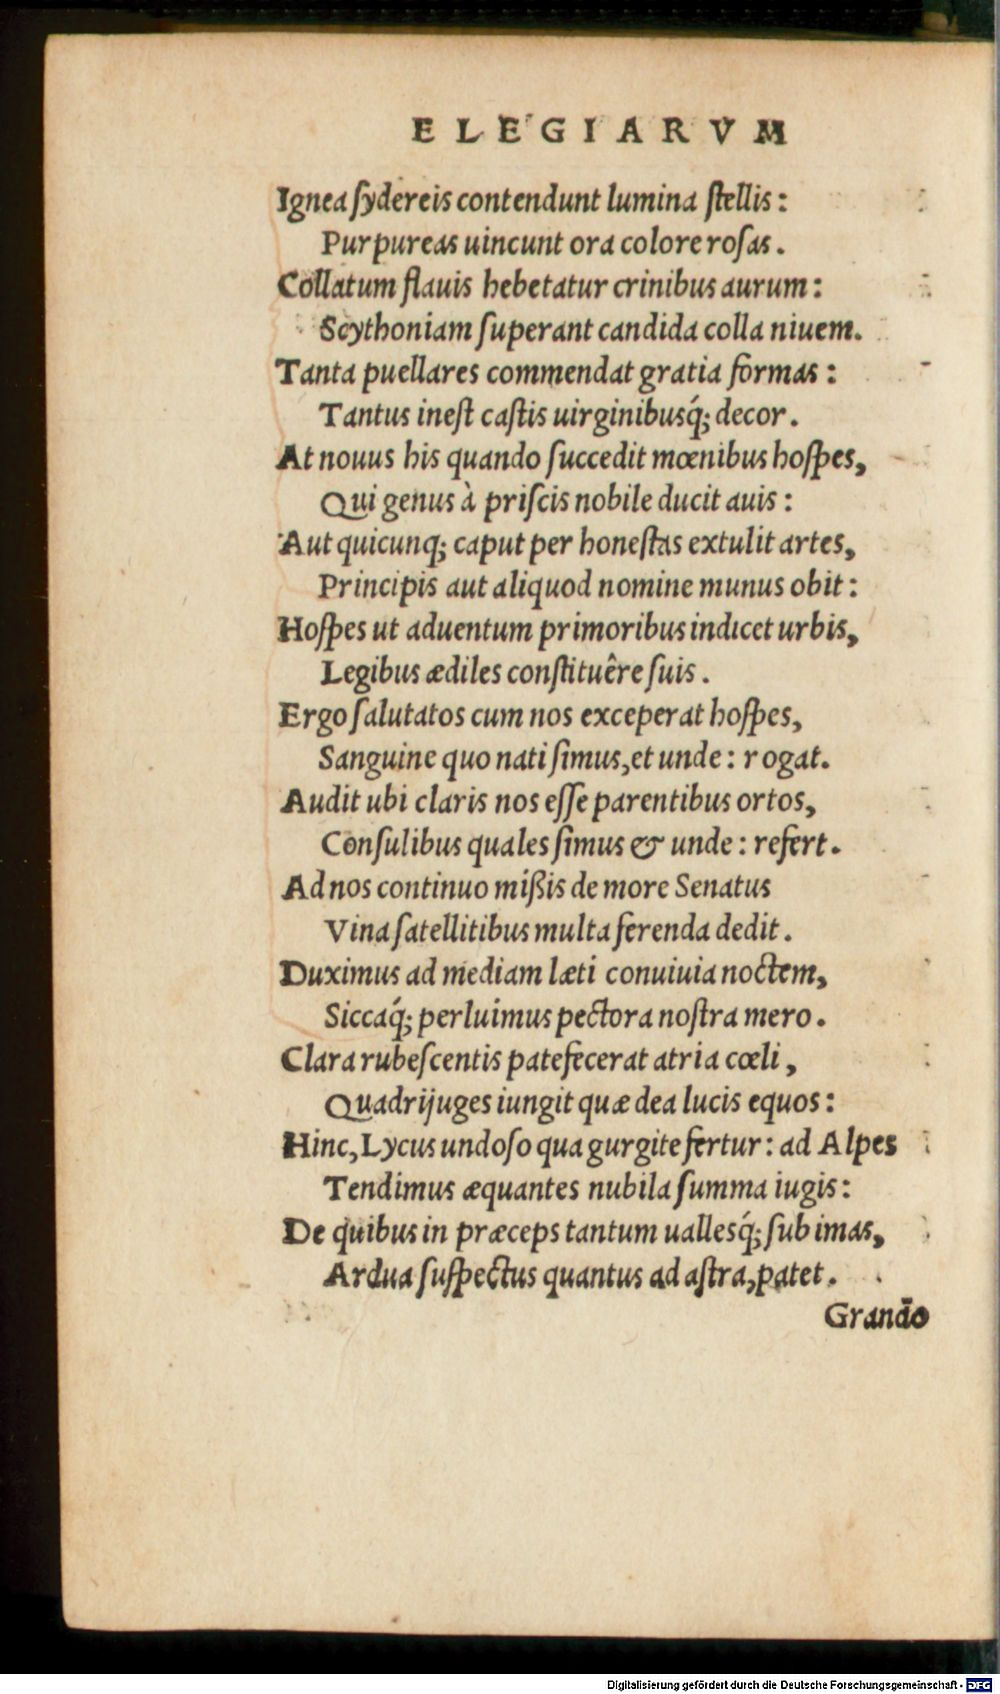 ELEGIARVM
Ignea ſydereis contendunt lumina ſtellis:
Purpureas uincunt ora colore roſas.
Collatum flauis hebetatur crinibus aurum:
Scythoniam ſuperant candida colla niuem.
Tanta puellares commendat gratia formas:
Tantus ineſt caſtis uirginibusq́; decor.
At nouus his quando ſuccedit mœnibus hoſpes,
Qui genus à priſcis nobile ducit auis:
Aut quicunq; caput per honeſtas extulit artes,
Principis aut aliquod nomine munus obit:
Hoſpes ut aduentum primoribus indicet urbis,
Legibus ædiles conſtituêre ſuis.
Ergo ſalutatos cum nos exceperat hoſpes,
Sanguine quo nati ſimus, et unde: rogat.
Audit ubi claris nos eſſe parentibus ortos,
Conſulibus quales ſimus & unde: refert.
Ad nos continuo mißis de more Senatus
Vina ſatellitibus multa ferenda dedit.
Duximus ad mediam læti conuiuia noctem,
Siccaq́; perluimus pectora noſtra mero.
Clara rubeſcentis patefecerat atria cœli,
Quadrijuges iungit quæ dea lucis equos:
Hinc, Lycus undoſo qua gurgite fertur: ad Alpes
Tendimus æquantes nubila ſumma iugis:
De quibus in præceps tantum uallesq́; ſub imas,
Ardua ſuſpectus quantus ad aſtra, patet.
Grandō
Digitalisierung gefördert durch die Deutsche Forschungsgemeinschaft - DFG